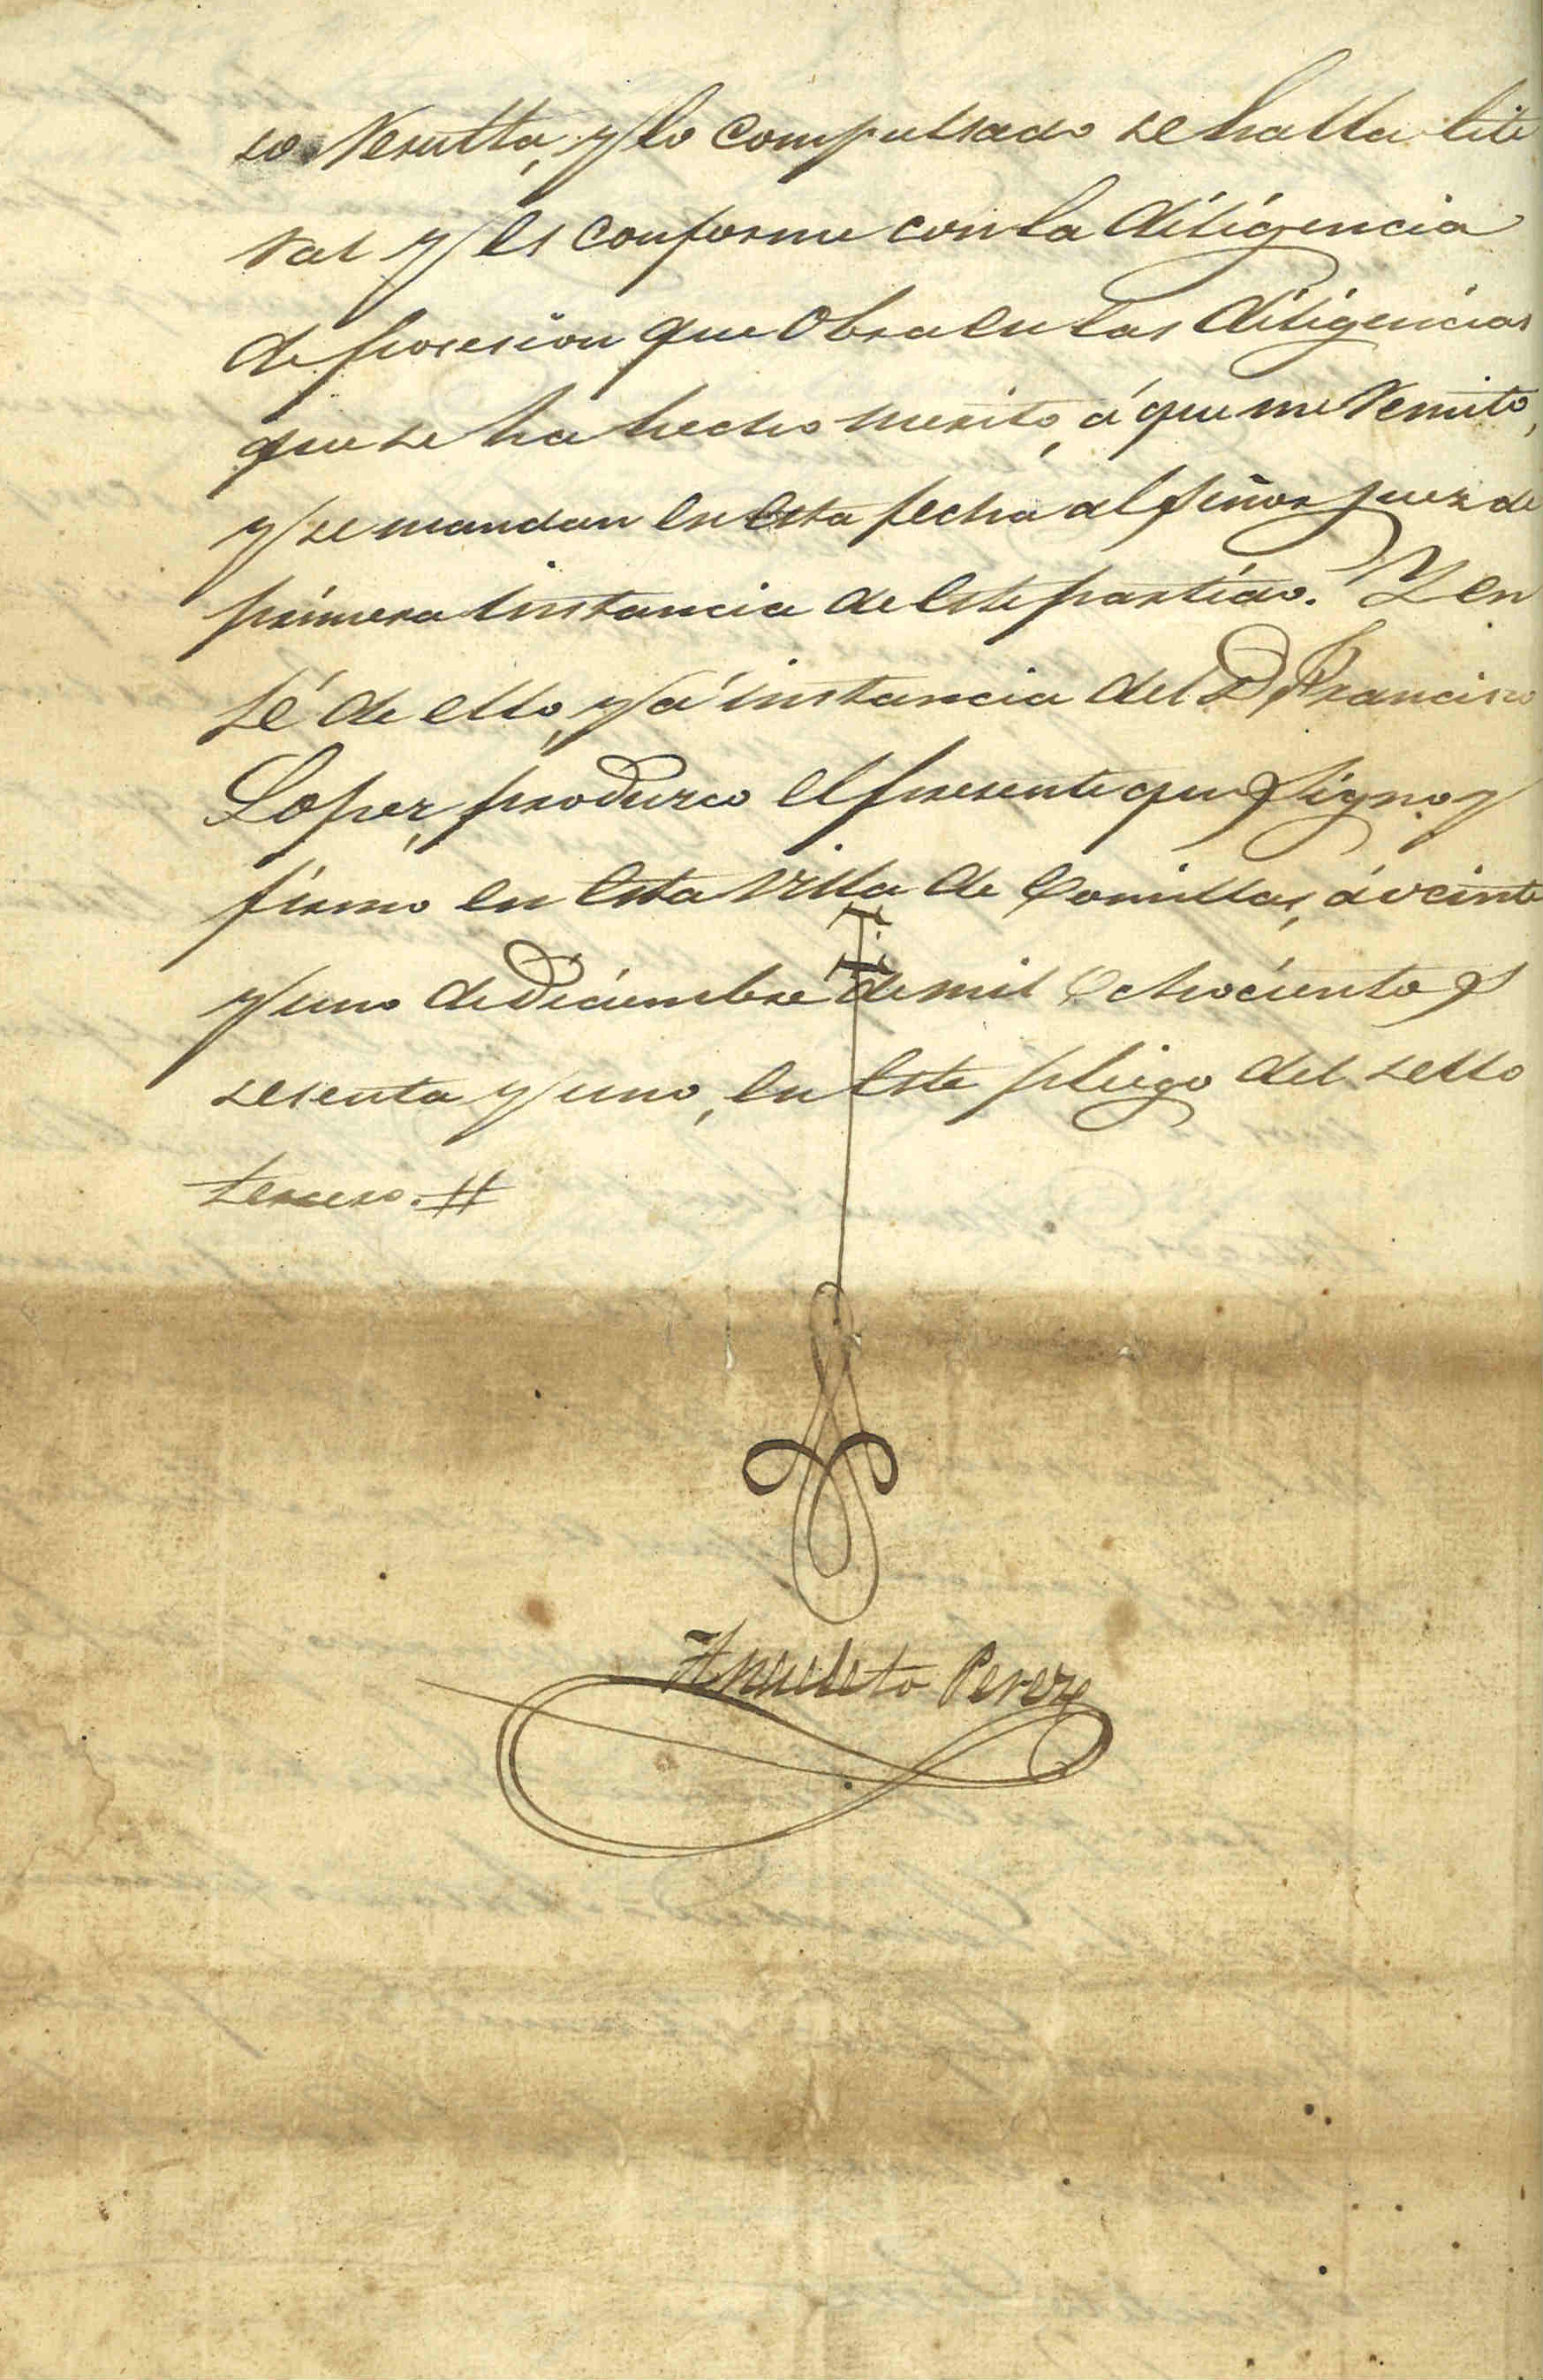 so Resulta, y lo compulsado se halla lite
ral y es conforme con la diligencia
de posesion que Obra en las diligencias
que se ha hecho merito, á que me Remito,
y se mandan en esta fecha al Señor Juez de
primera instancia de este partido. Y en
fé de ello, y á instancia del D. Francisco
Lopez, produzco el presente que Signo y
firmo en esta Villa de Comillas, á veinte
y uno de Diciembre de mil Ochocientos
sesenta y uno, en este pliego del sello
tercero.
Anacleto Perez